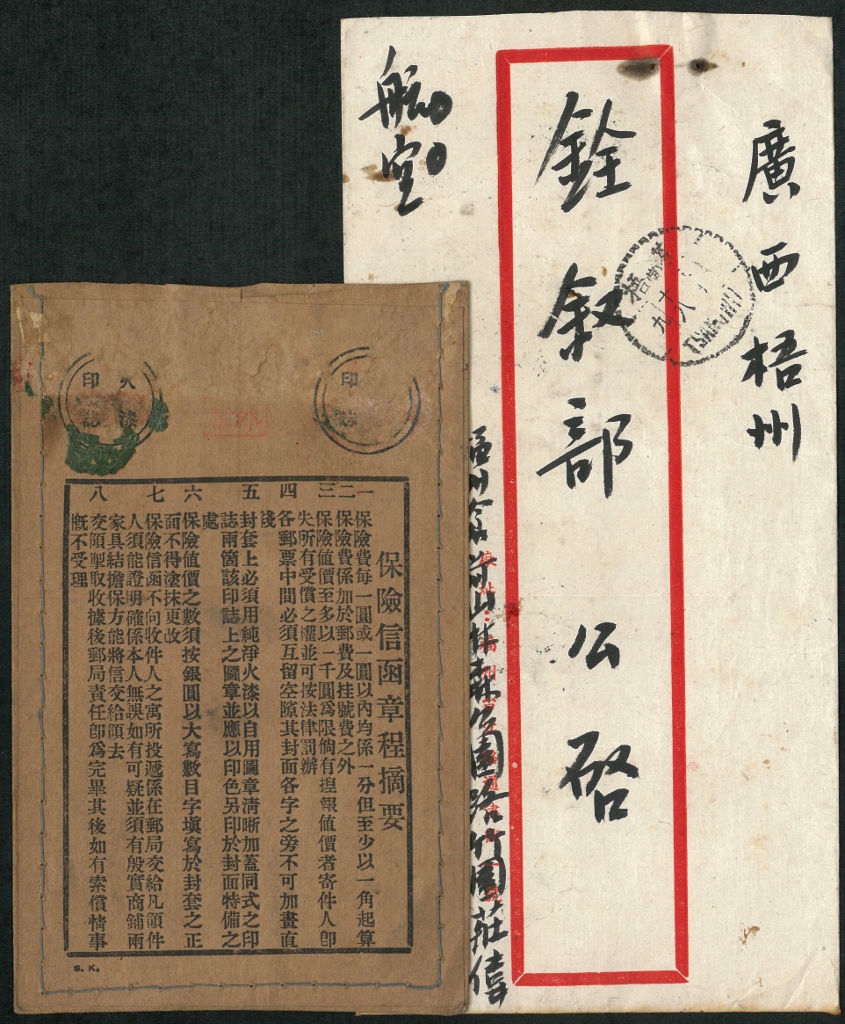 廣西梧州
銓叙部公啓
航空
梧
九
八
TSANGWU
火漆
印誌
印
誌
保險信函章程摘要
一 保險費每一圓或一圓以內均係一分但至少以一角起算
二 保險費係加於郵費及挂號費之外
三 保險値價至多以一千圓爲限倘有揑報値價者寄件人卽
失所有受償之權並可按法律罰辦
四 各郵票中間必須互留空隙其封面各字之旁不可加畫直
綫
五 封套上必須用純淨火漆以自用圖章清晰加蓋同式之印
誌兩箇該印誌上之圖章並應以印色另印於封面特備之
處
六 保險値價之數須按銀圓以大寫數目字塡寫於封套之正
面不得塗抹更改
七 保險信函不向收件人之寓所投遞係在郵局交給凡領件
人須能證明確係本人無誤如有可疑並須有殷實商鋪兩
家具結擔保方能將信交給領去
八 交領掣取收據後郵局責任卽爲完畢其後如有索償情事
槪不受理
S. K.